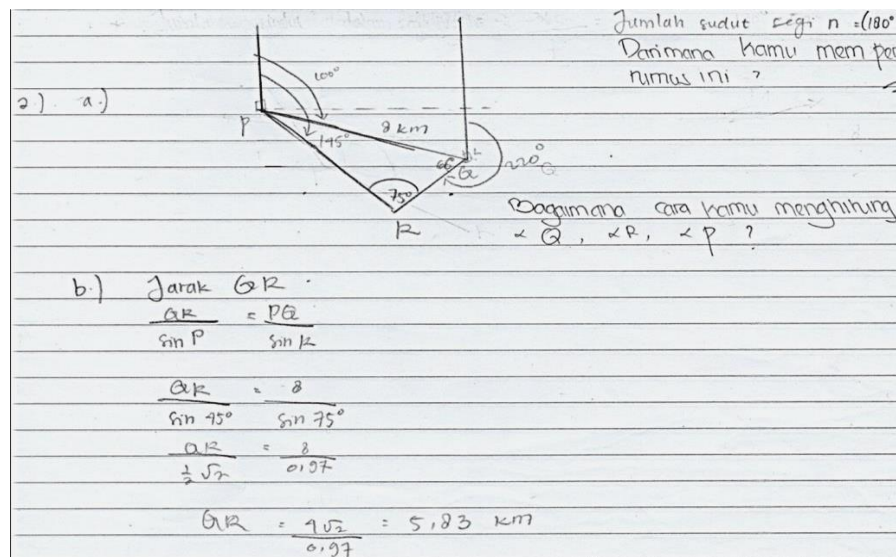 Jumlah sudut segi n = (180°
Darimana kamu mem per
rumus ini ?
2.) a.)
100°
P
145°
8 km
60°
Q
220°
75°
R
Bagaimana cara kamu menghitung
∠ Q, ∠R, ∠ P ?
b.) Jarak QR .
QR / sin P = PQ / sin R
QR / sin 45° = 8 / sin 75°
QR / ½√2 = 8 / 0,97
QR = 4√2 / 0,97 = 5,83 km